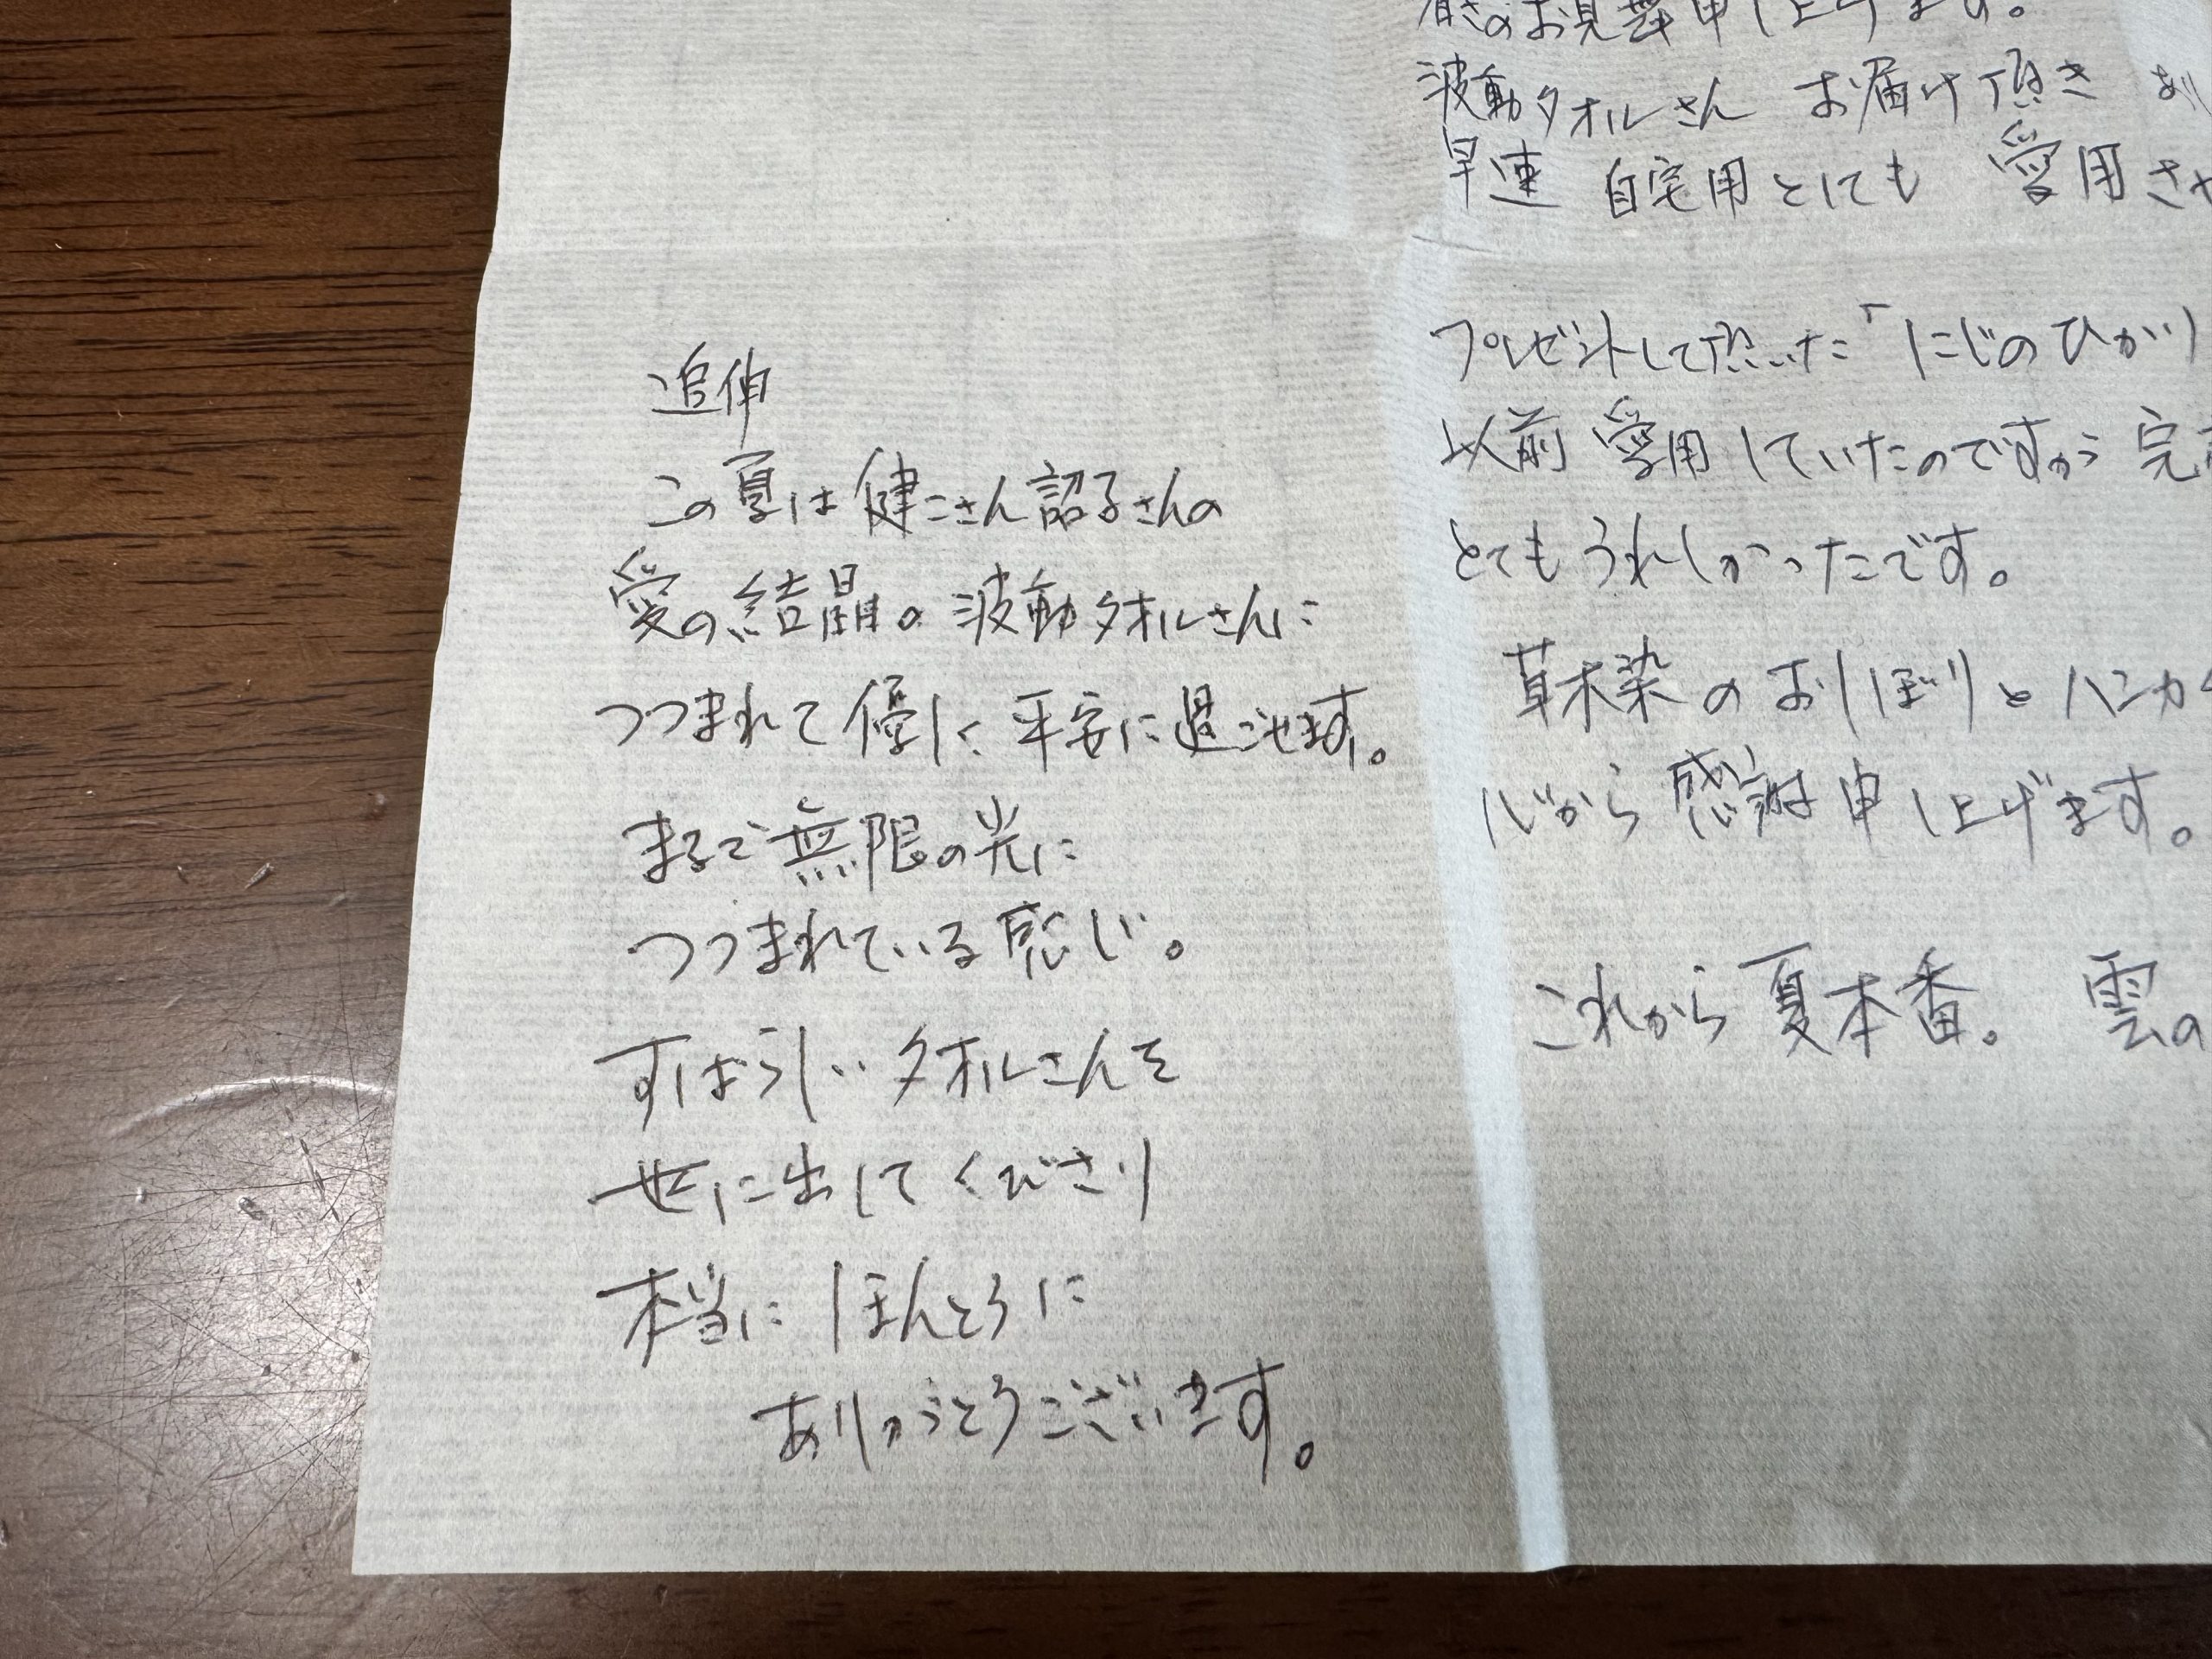 暑さのお見舞申し上げます。
波動タオルさん お届け頂き あり
早速 自宅用とにても 愛用させ
プレゼントして頂いた「にじのひかり
以前 愛用していたのですから 完
とてもうれしかったです。
草木染のおしぼりとハンカ
心から感謝申し上げます。
これから夏本番。 雲の
追伸
この夏は健こさん詔子さんの
愛の結晶の波動タオルさんに
つつまれて優しく平安に過ごせます。
まるで無限の光に
つつまれている感じ。
すばらしいタオルさんを
世に出してくださり
本当に ほんとうに
ありがとうございます。